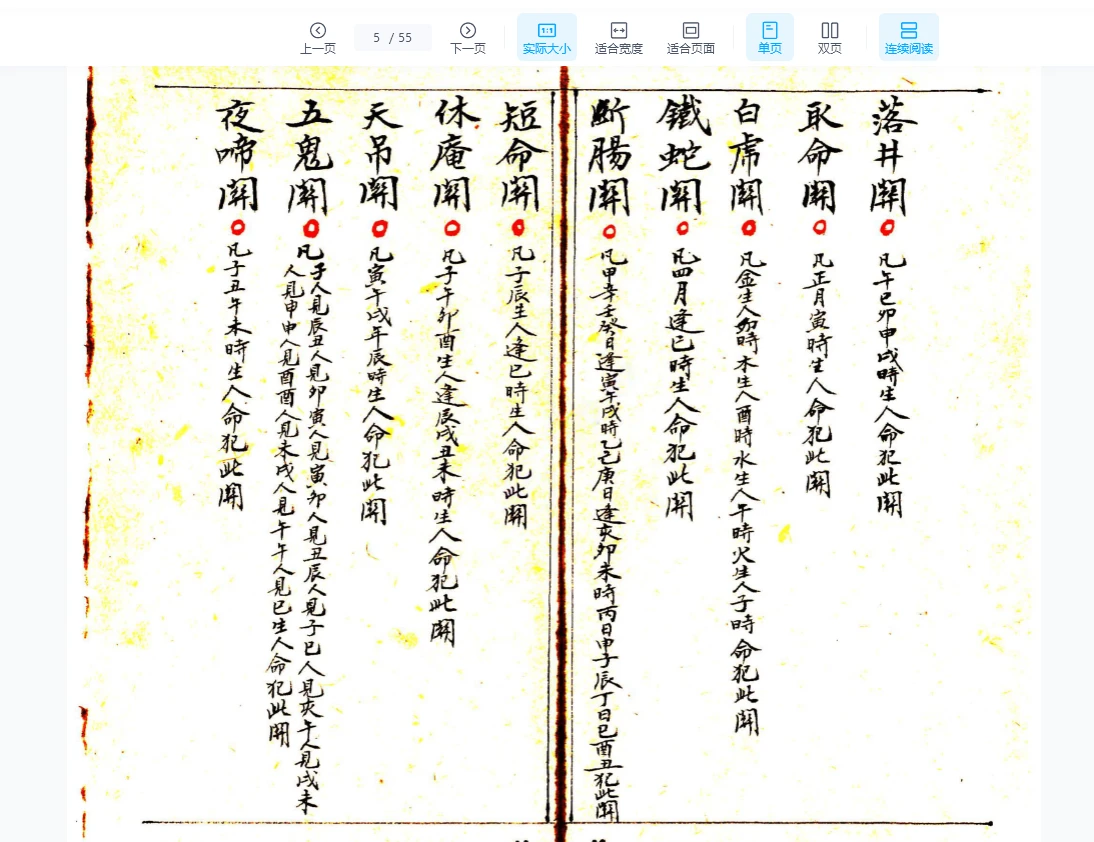 上一页
5 / 55
下一页
实际大小
适合宽度
适合页面
单页
双页
连续阅读
落井關
凡午巳卯申戌時生人命犯此關
取命關
凡正月寅時生人命犯此關
白虎關
凡金生人卯時木生人酉時水生人午時火生人子時命犯此關
鐵蛇關
凡四月逢巳時生人命犯此關
断腸關
凡甲辛壬癸日逢寅午戌時乙己庚日逢亥卯未時丙日申子辰丁日巳酉丑犯此關
短命關
凡子辰生人逢巳時生人命犯此關
休庵關
凡子午卯酉生人逢辰戌丑未時生人命犯此關
天吊關
凡寅午戌年辰時生人命犯此關
五鬼關
凡子人見辰丑人見卯寅人見寅卯人見丑辰人見子巳人見亥午人見戌未
人見申申人見酉酉人見未戌人見午午人見巳生人命犯此關
夜啼關
凡子丑午未時生人命犯此關